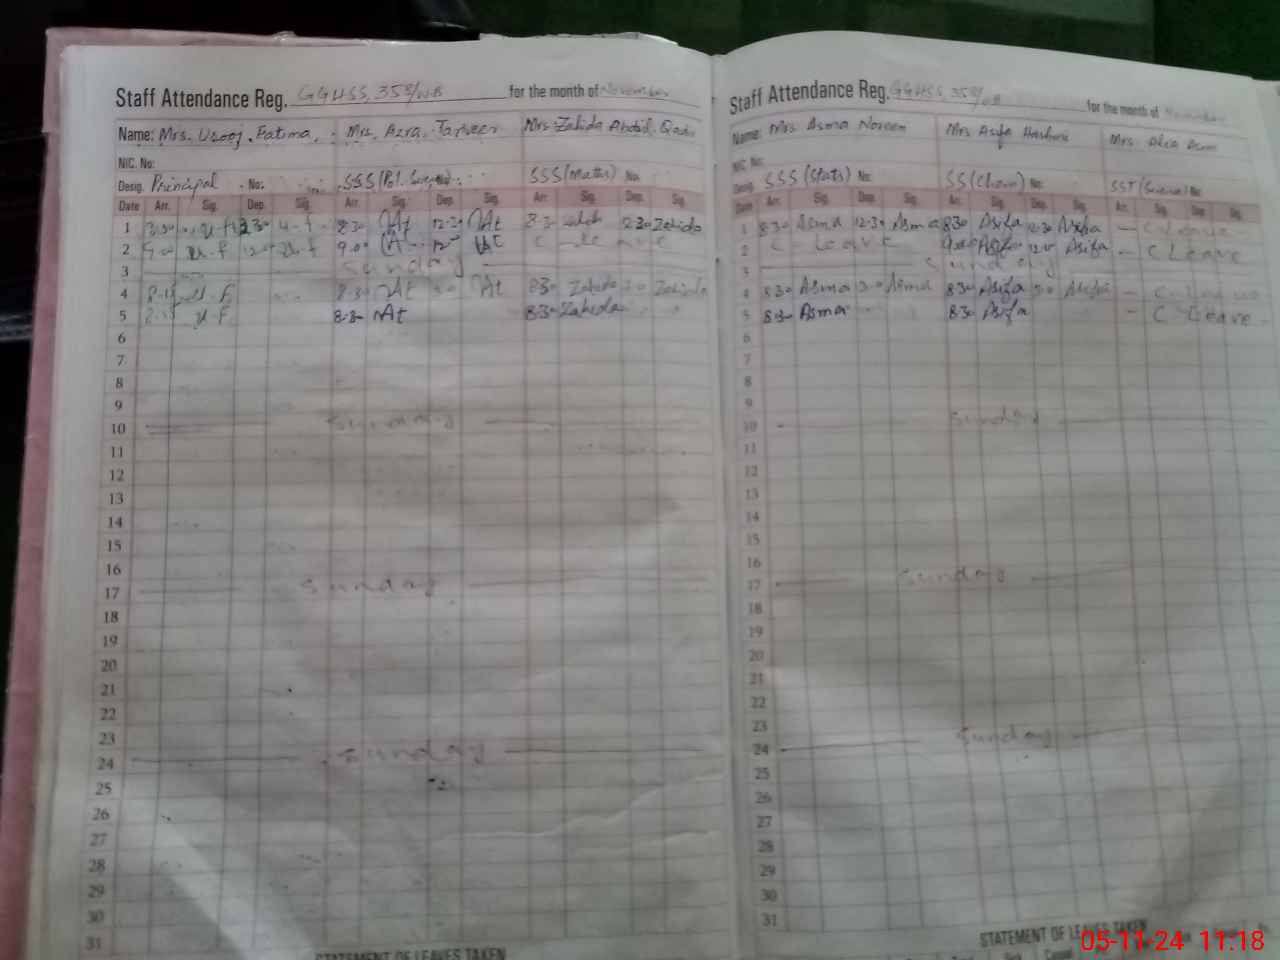 Staff Attendance Reg. GGHSS, 355/WB for the month of November
Name: Mrs. Fatima Mrs. Azra Mrs. Zahida Abdul
NIC. No:
Desig. Principal No: SSS (Pol. No: SSS (Maths) No:
Date Arr. Sig. Dep. Sig. Arr. Sig. Dep. Sig. Arr. Sig. Dep. Sig.
1 8:30 12:30 8:30 At 12:30 At 8:30 12:30 Zahida
2 9:00 u.f 12:0 u.f 9:00 At 12:0 At C Leave
3 Sunday
4 u.f 8:30 At 3:0 At 8:30 Zahida 3:0 Zahida
5 u.f 8:30 At 8:30 Zahida
6
7
8
9
10 Sunday
11
12
13
14
15
16
17 Sunday
18
19
20
21
22
23
24 Sunday
25
26
27
28
29
30
31
STATEMENT OF LEAVES TAKEN
Staff Attendance Reg. GGHSS, 355/WB for the month of November
Name: Mrs Asma Noreen Mrs Asifa Mrs.
NIC. No:
Desig. SSS (Stats) No: SS (Chem) No: SST (Science) No:
Date Arr. Sig. Dep. Sig. Arr. Sig. Dep. Sig. Arr. Sig. Dep. Sig.
1 8:30 Asma 12:30 Asma 8:30 Asifa 12:30 Asifa - C Leave
2 C Leave 9:00 Asifa 12:0 Asifa - C Leave
3 Sunday
4 8:30 Asma 3:0 Asma 8:30 Asifa 3:0 Asifa - C Leave
5 8:30 Asma 8:30 Asifa - C Leave
6
7
8
9
10 Sunday
11
12
13
14
15
16
17 Sunday
18
19
20
21
22
23
24 Sunday
25
26
27
28
29
30
31
STATEMENT OF LEAVES TAKEN
05-11-24 11:18